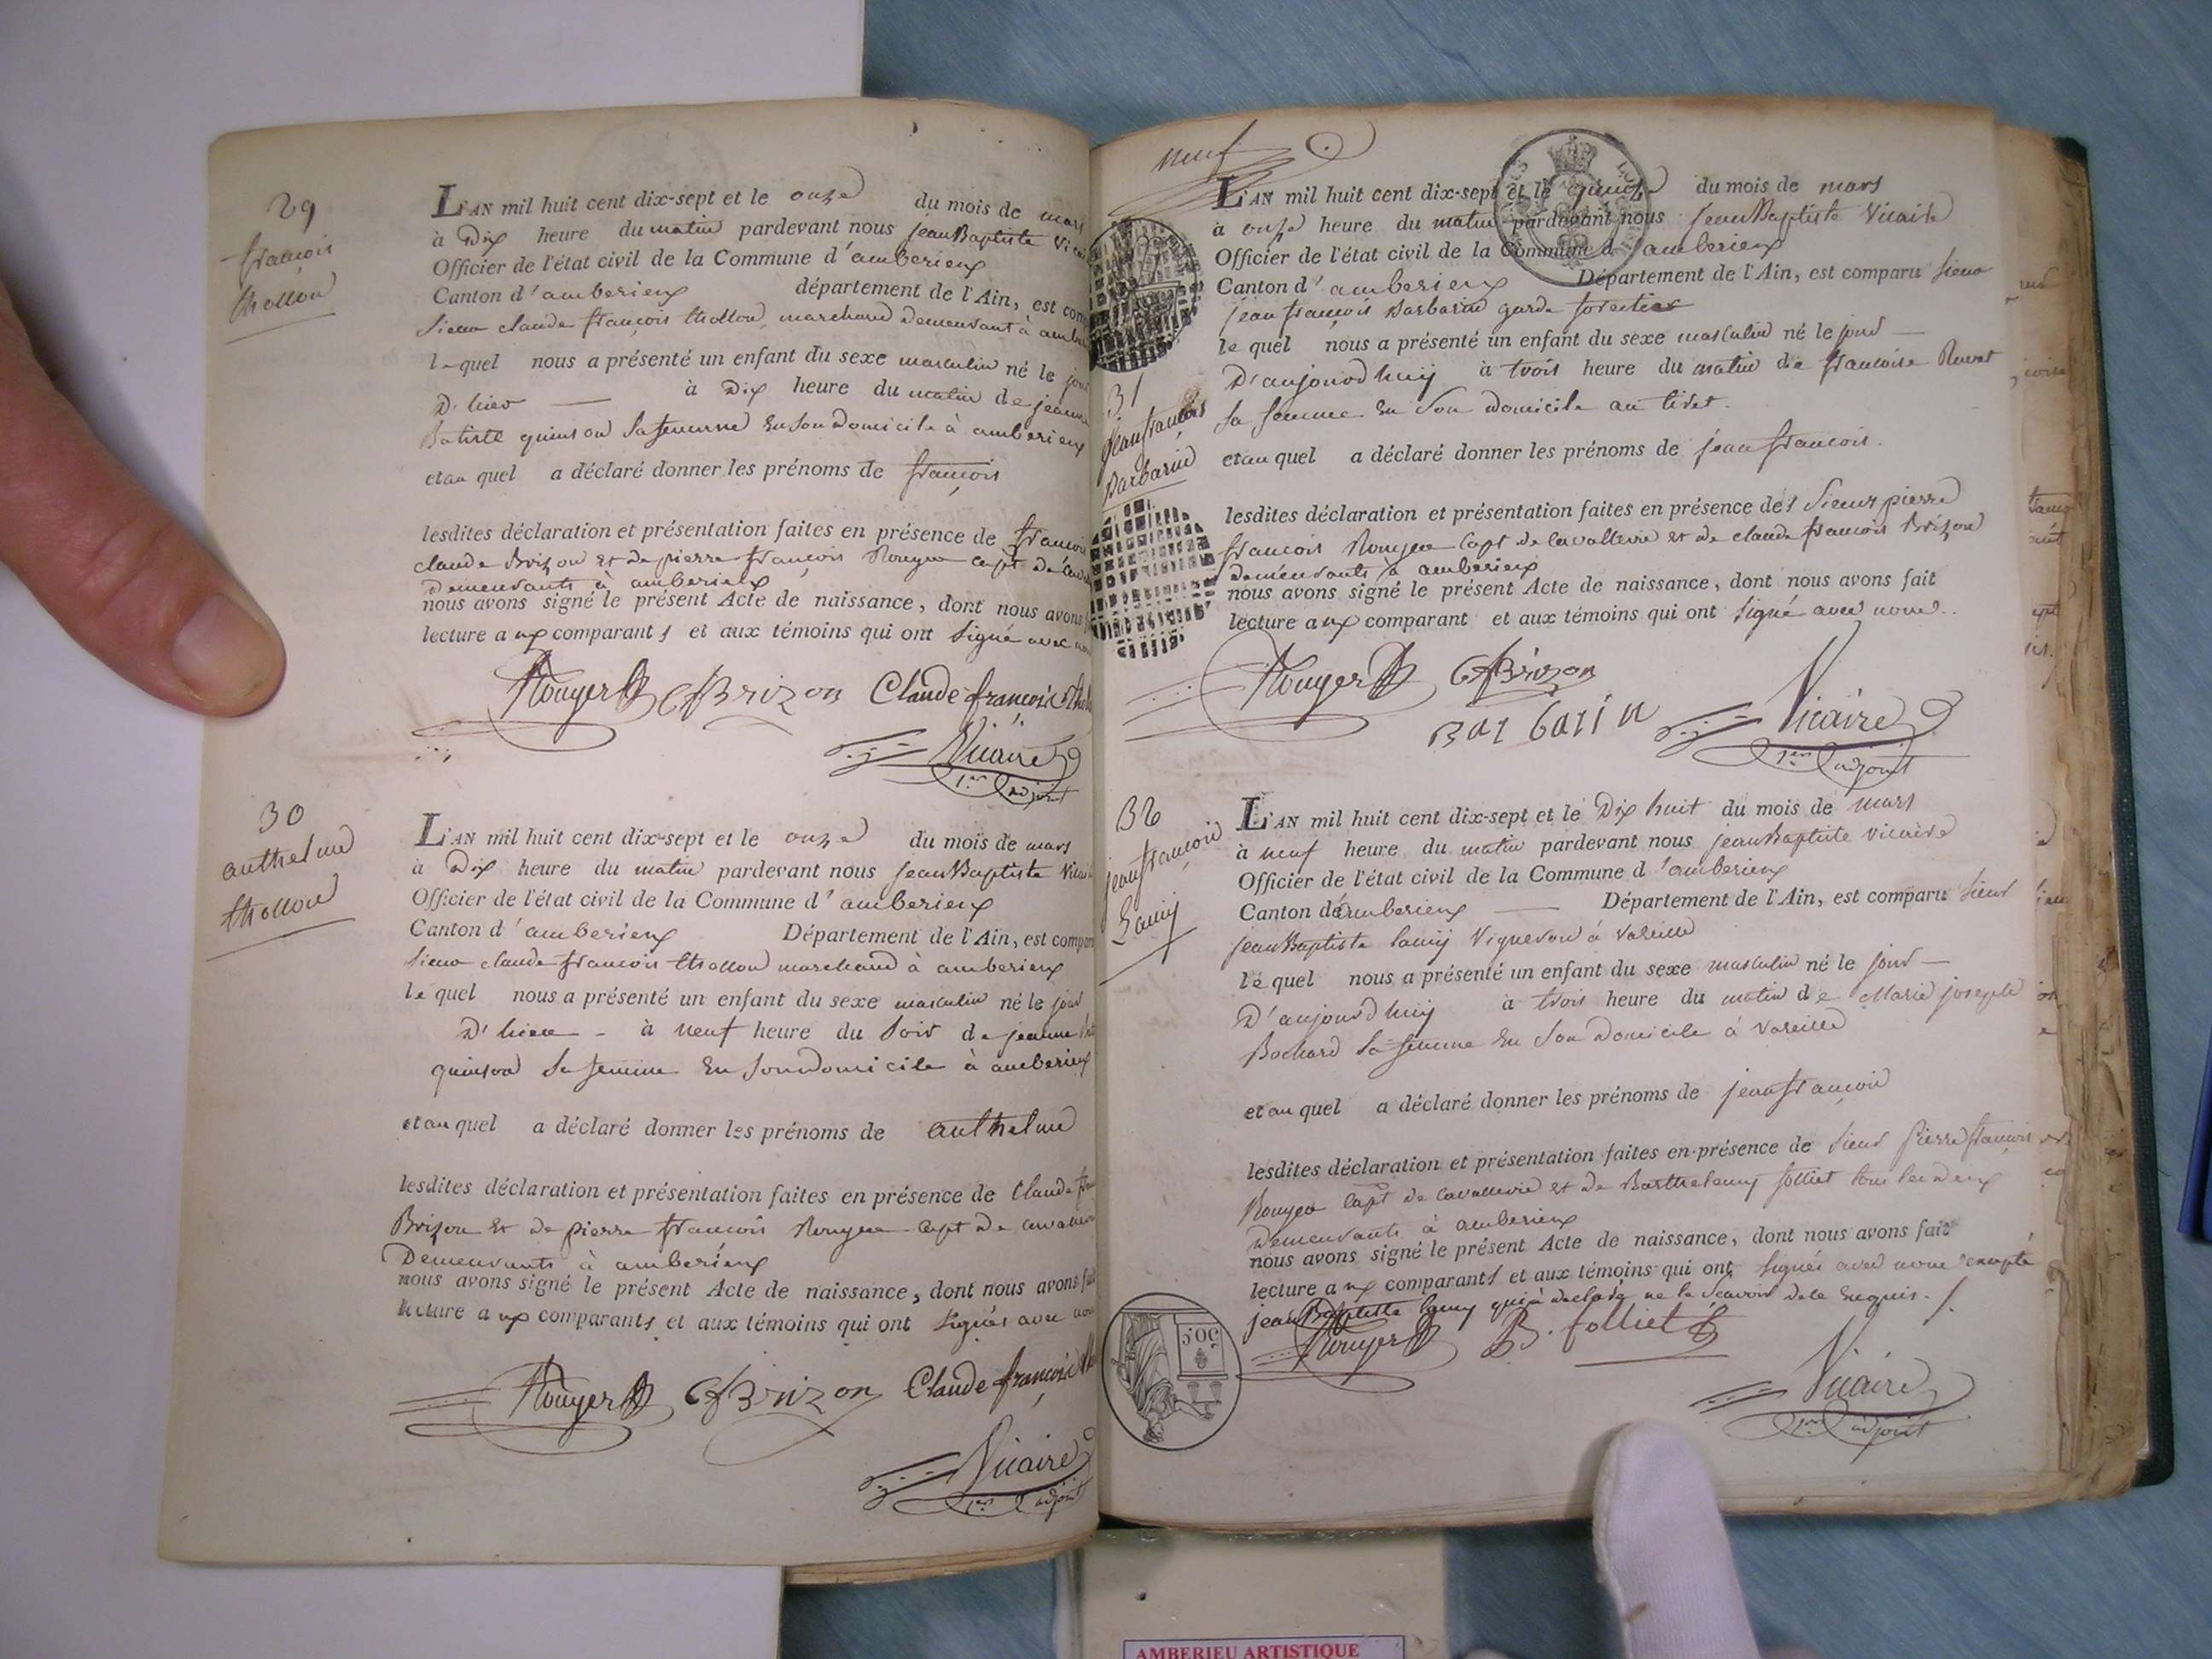 29
françois
thollon
L'AN mil huit cent dix-sept et le onze du mois de mars
à Dix heure du matin pardevant nous jean Baptiste Vicai
Officier de l'état civil de la Commune d'amberieux
Canton d'amberieux département de l'Ain, est com
sieur claude françois thollon, marchand demeurant à ambe
le quel nous a présenté un enfant du sexe masculin né le jou
D'hier — à Dix heure du matin de jeanne
Batiste quinson sa femme en son domicile à amberieux
et au quel a déclaré donner les prénoms de françois
lesdites déclaration et présentation faites en présence de françois
claude Brizon et de pierre françois Rouyer capt de
demeurants à amberieux
nous avons signé le présent Acte de naissance, dont nous avons
lecture aux comparants et aux témoins qui ont signé avec nous
Rouyer CfBrizon Claude françois thol
Vicaire
1er adjoint
30
anthelme
thollon
L'AN mil huit cent dix-sept et le onze du mois de mars
à Dix heure du matin pardevant nous jean Baptiste Vicai
Officier de l'état civil de la Commune d'amberieux
Canton d'amberieux Département de l'Ain, est compar
sieur claude françois thollon marchand à amberieux
le quel nous a présenté un enfant du sexe masculin né le jour
D'hier - à neuf heure du soir de jeanne
quinson sa femme en son domicile à amberieux
et au quel a déclaré donner les prénoms de anthelme
lesdites déclaration et présentation faites en présence de Claude fran
Brizon et de pierre françois Rouyer capt de cavallerie
Demeurants à amberieux
nous avons signé le présent Acte de naissance, dont nous avons fait
lecture aux comparants et aux témoins qui ont signés avec nous
Rouyer CfBrizon Claude françois th
Vicaire
1er adjoint
neuf
31
jean françois
Barbarin
L'AN mil huit cent dix-sept et le quinze du mois de mars
à onze heure du matin pardevant nous jean Baptiste Vicaire
Officier de l'état civil de la Commune d'amberieux
Canton d'amberieux Département de l'Ain, est comparu sieur
jean françois Barbarin garde forestier
le quel nous a présenté un enfant du sexe masculin né le jour —
D'aujourd huij à trois heure du matin de francoise
sa femme en son domicile au tiret.
et au quel a déclaré donner les prénoms de jean françois.
lesdites déclaration et présentation faites en présence des sieurs pierre
françois Rouyer capt de cavallerie et de claude françois Brizon
demeurants à amberieux
nous avons signé le présent Acte de naissance, dont nous avons fait
lecture aux comparant et aux témoins qui ont signé avec nous.
Rouyer CfBrizon
Barbarin Vicaire
1er adjoint
32
jean françois
Lamy
L'AN mil huit cent dix-sept et le Dix huit du mois de mars
à neuf heure du matin pardevant nous jean Baptiste Vicaire
Officier de l'état civil de la Commune d'amberieux
Canton d'amberieux — Département de l'Ain, est comparu sieur
jean Baptiste lamij Vigneron à Vareille
le quel nous a présenté un enfant du sexe masculin né le jour —
D'aujourd huij à trois heure du matin de Marie josephe
Bochard sa femme en son domicile à Vareille
et au quel a déclaré donner les prénoms de jean françois
lesdites déclaration et présentation faites en présence de sieur pierre françois
Rouyer capt de cavallerie et de Barthelemy folliet tous les deux
demeurants à amberieux
nous avons signé le présent Acte de naissance, dont nous avons fait
lecture aux comparants et aux témoins qui ont signés avec nous excepté
jean Baptiste lamy qui à déclaré ne le scavoir de ce enquis.
Rouyer B. folliet
Vicaire
1er adjoint
50c
AMBERIEU ARTISTIQUE